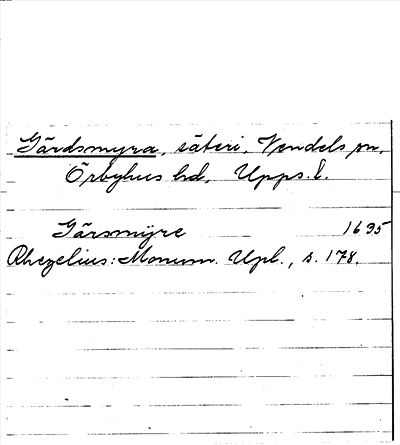 Gärdsmyra, säteri, Vendels sn,
Örbyhus hd, Upps. l.
Gärsmÿre 1695
Rhezelius: Monum. Upl., s. 178.